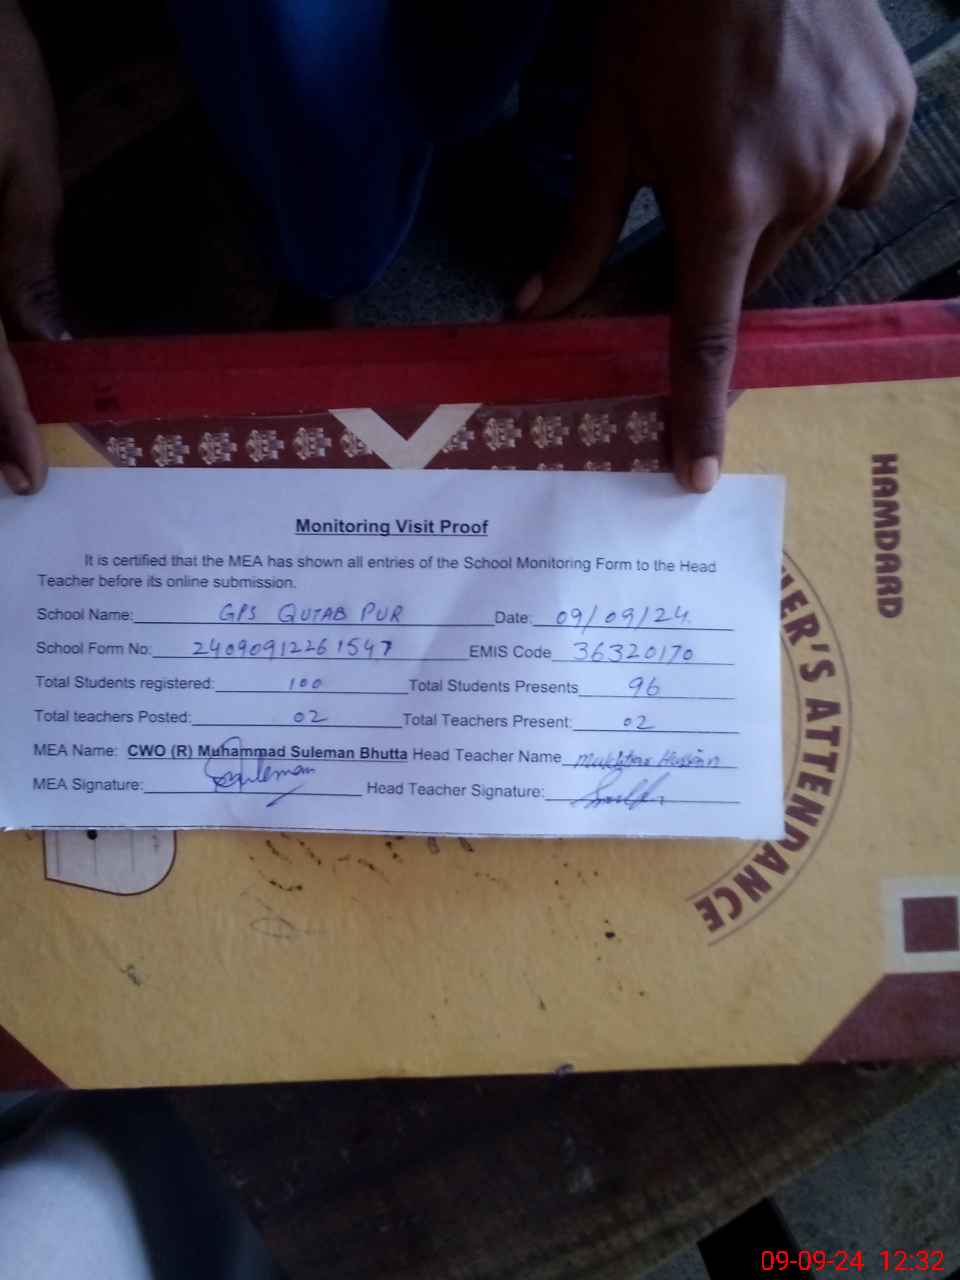 Monitoring Visit Proof
It is certified that the MEA has shown all entries of the School Monitoring Form to the Head
Teacher before its online submission.
School Name: GPS QUTAB PUR Date: 09/09/24
School Form No: 24090912261547 EMIS Code 36320170
Total Students registered: 100 Total Students Presents 96
Total teachers Posted: 02 Total Teachers Present: 02
MEA Name: CWO (R) Muhammad Suleman Bhutta Head Teacher Name Mukhtar Hussain
MEA Signature: Suleman Head Teacher Signature:
HAMDARD
ATTENDANCE
09-09-24 12:32